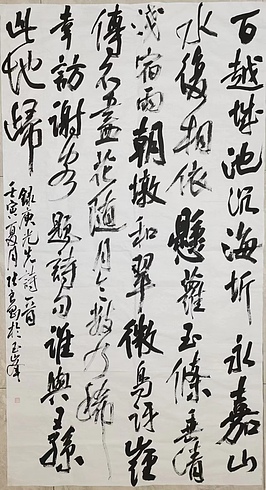 百越城池沉海圻永嘉山
水復相依懸蘿玉條垂清
淺宿雨朝墩和翠微鳥語
傳不盡花隨月令數
幸訪謝客題詩句誰與王孫
此地歸
錄庾光先詩一首
壬寅夏月